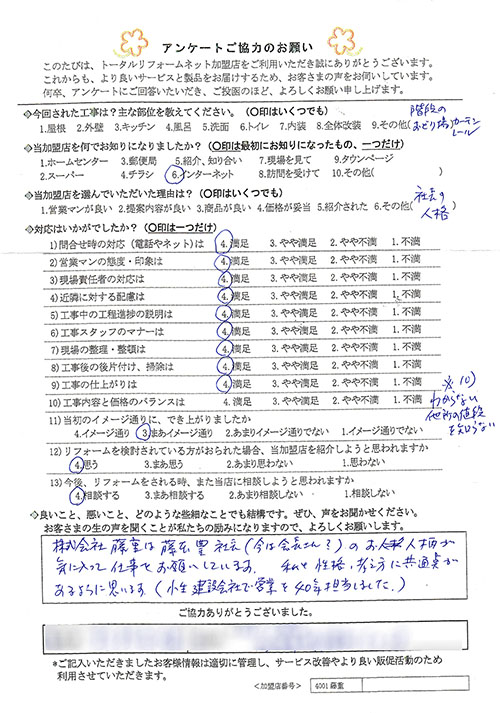 アンケートご協力のお願い
このたびは、トータルリフォームネット加盟店をご利用いただき誠にありがとうございます。
これからも、より良いサービスと製品をお届けするため、お客さまの声をお伺いしています。
何卒、アンケートにご回答いただき、ご投函のほど、よろしくお願い申し上げます。
◇今回された工事は?主な部位を教えてください。(〇印はいくつでも)
1.屋根 2.外壁 3.キッチン 4.風呂 5.洗面 6.トイレ 7.内装 8.全体改装 9.その他(階段のおどり場カーテンレール)
◇当加盟店を何でお知りになりましたか?(〇印は最初にお知りになったもの、一つだけ)
1.ホームセンター 3.郵便局 5.紹介、知り合い 7.現場を見て 9.タウンページ
2.スーパー 4.チラシ 6.インターネット 8.訪問を受けて 10.その他( )
◇当加盟店を選んでいただいた理由は?(〇印はいくつでも)
1.営業マンが良い 2.提案内容が良い 3.商品が良い 4.価格が妥当 5.紹介された 6.その他(社長の人格)
◇対応はいかがでしたか?(〇印は一つだけ)
1)問合せ時の対応(電話やネット)は 4.満足 3.やや満足 2.やや不満 1.不満
2)営業マンの態度・印象は 4.満足 3.やや満足 2.やや不満 1.不満
3)現場責任者の対応は 4.満足 3.やや満足 2.やや不満 1.不満
4)近隣に対する配慮は 4.満足 3.やや満足 2.やや不満 1.不満
5)工事中の工程進捗の説明は 4.満足 3.やや満足 2.やや不満 1.不満
6)工事スタッフのマナーは 4.満足 3.やや満足 2.やや不満 1.不満
7)現場の整理・整頓は 4.満足 3.やや満足 2.やや不満 1.不満
8)工事後の後片付け、掃除は 4.満足 3.やや満足 2.やや不満 1.不満
9)工事の仕上がりは 4.満足 3.やや満足 2.やや不満 1.不満
10)工事内容と価格のバランスは 4.満足 3.やや満足 2.やや不満 1.不満
※10)
わからない
他所の値段
を知らない
11)当初のイメージ通りに、でき上がりましたか
4.イメージ通り 3.まあイメージ通り 2.あまりイメージ通りでない 1.イメージ通りでない
12)リフォームを検討されている方がおられた場合、当加盟店を紹介しようと思われますか
4.思う 3.まあ思う 2.あまり思わない 1.思わない
13)今後、リフォームをされる時、また当店に相談しようと思われますか
4.相談する 3.まあ相談する 2.あまり相談しない 1.相談しない
◇良いこと、悪いこと、どのような些細なことでも結構です。ぜひ、声をお聞かせください。
お客さまの生の声を聞くことが私たちの励みになりますので、よろしくお願いします。
株式会社藤重は藤原豊社長(今は会長さん?)のお人柄が
気に入って仕事をお願いしています。私と性格、考え方に共通点が
あるように思います(小生建設会社で営業を40年担当しました。)
ご協力ありがとうございました。
*ご記入いただきましたお客様情報は適切に管理し、サービス改善やより良い販促活動のため
利用させていただきます。
<加盟店番号> 4001藤重